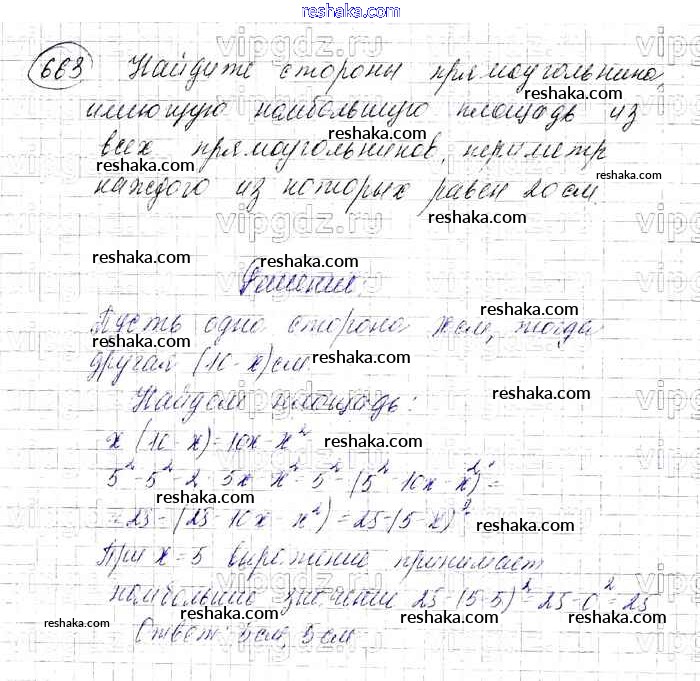 663 Найдите стороны прямоугольника,
имеющую наибольшую площадь из
всех прямоугольников, периметр
каждого из которых равен 20 см.
Решение:
Пусть одна сторона x см, тогда
другая (10-x) см.
Найдем площадь:
x (10-x) = 10x - x²
5² - 5² - 2 5x - x² = 5² - (5² 10x x²) =
= 25 - (25 - 10x x²) = 25 - (5-x)²
При x = 5 выражение принимает
наибольшие значении 25 - (5-5)² = 25 - 0² = 25
Ответ: 5 см, 5 см